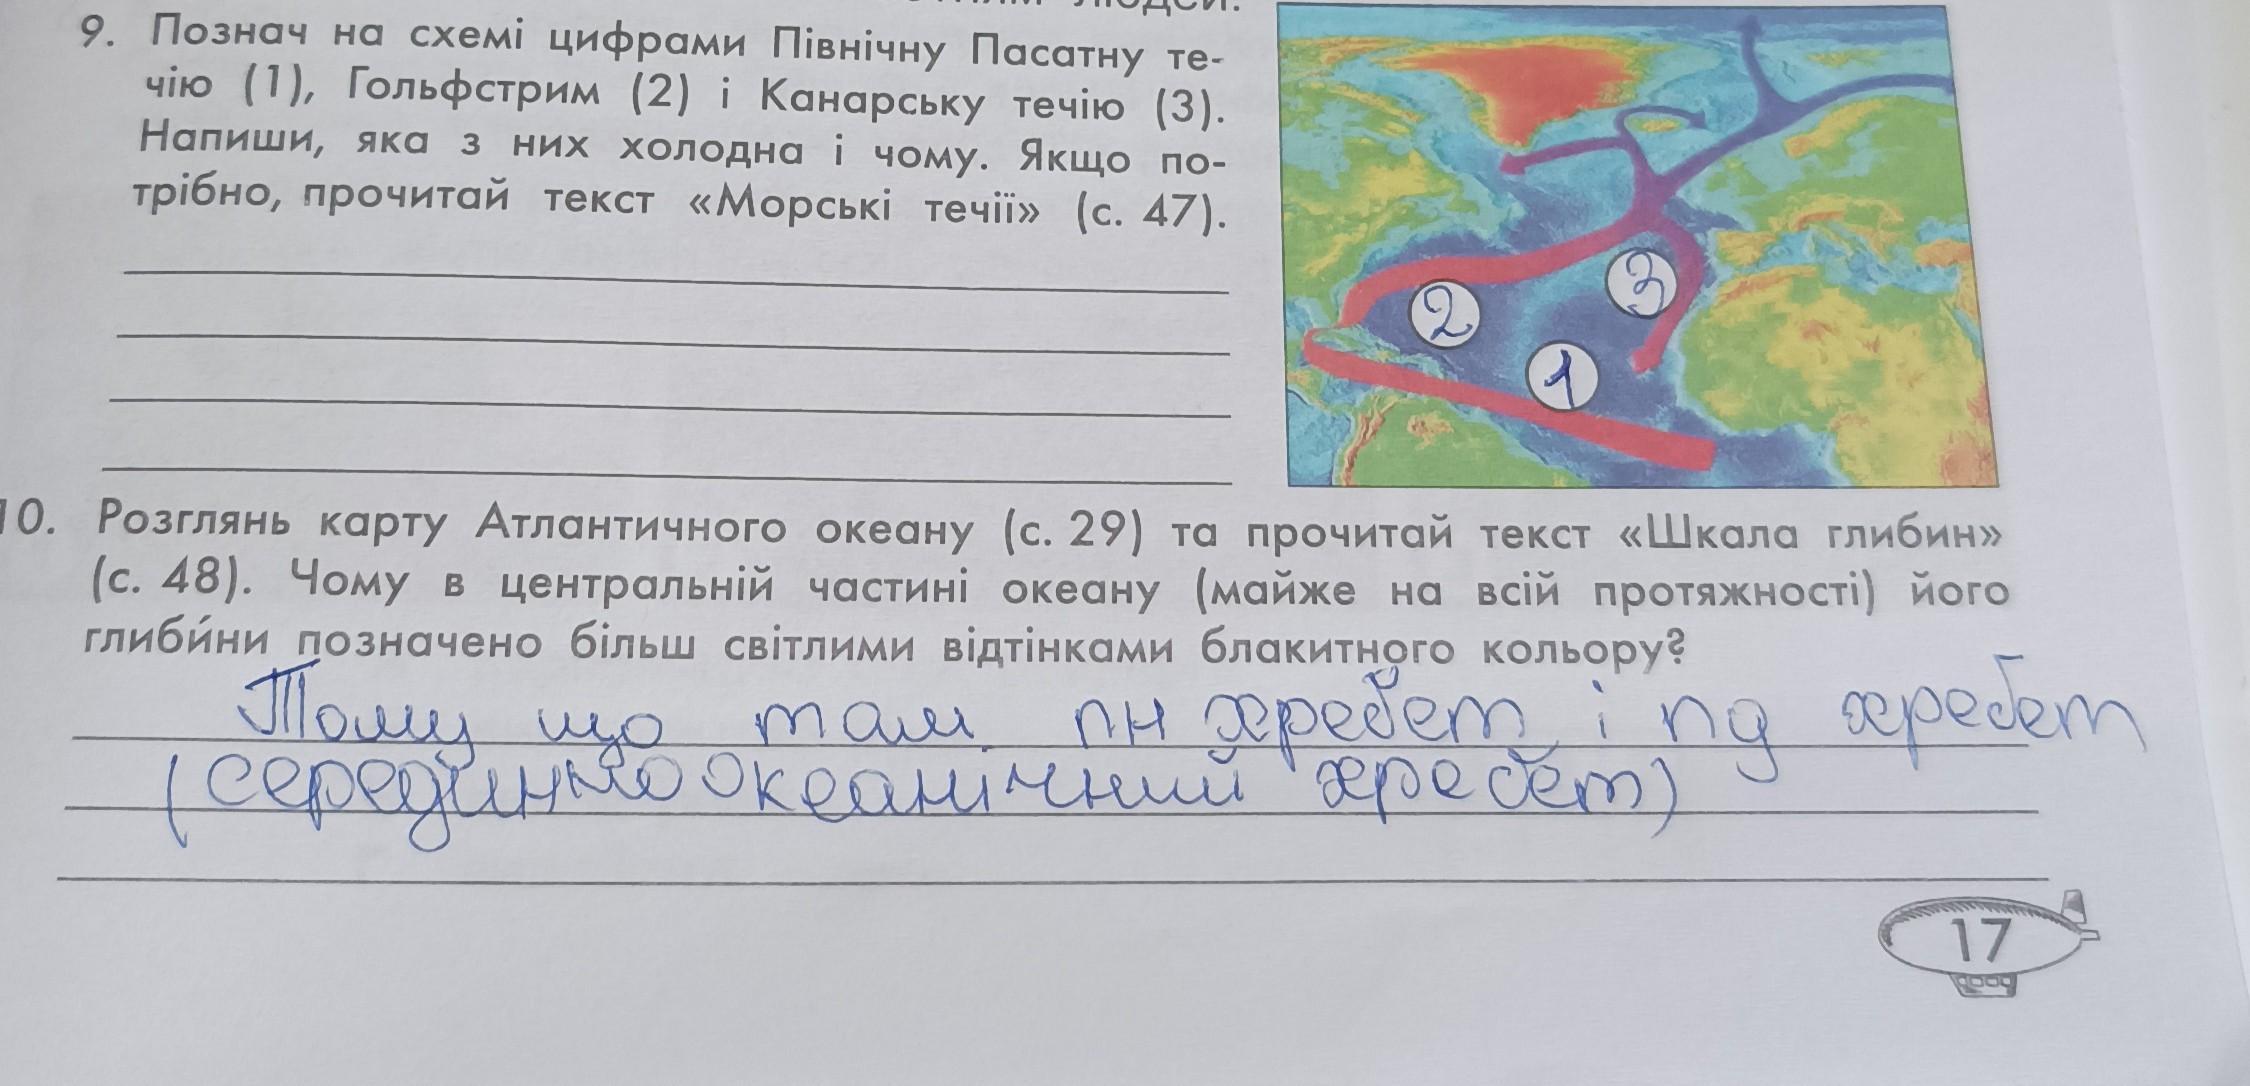 9. Познач на схемі цифрами Північну Пасатну те-
чію (1), Гольфстрим (2) і Канарську течію (3).
Напиши, яка з них холодна і чому. Якщо по-
трібно, прочитай текст «Морські течії» (с. 47).
2
3
1
10. Розглянь карту Атлантичного океану (с. 29) та прочитай текст «Шкала глибин»
(с. 48). Чому в центральній частині океану (майже на всій протяжності) його
глиби́ни позначено більш світлими відтінками блакитного кольору?
Тому що там пн хребет і пд хребет
(серединно океанічний хребет)
17